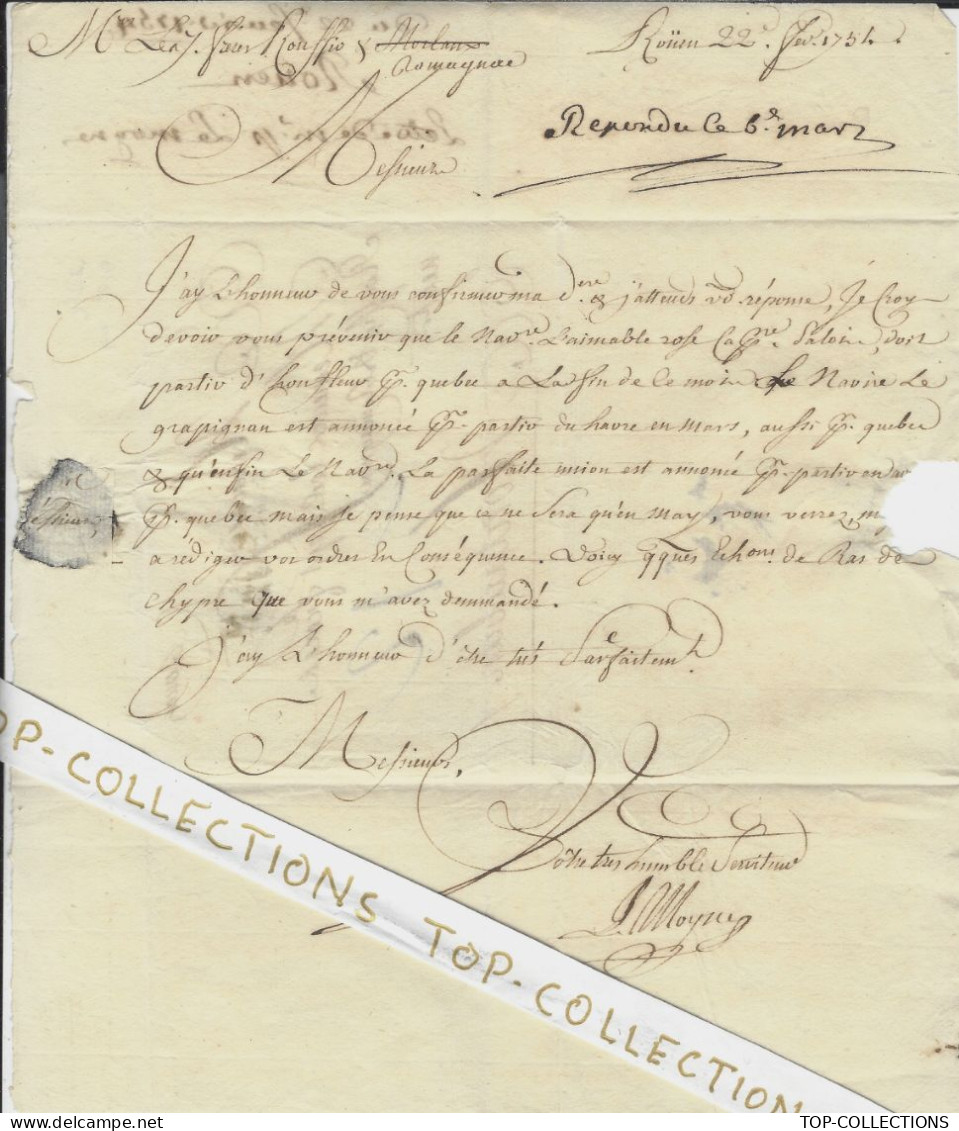 Roüen 22e. fev. 1754.
Mrs Lear. freres Rouffio & Morlanx
Romagnac
Repondu Le 6e. mars
Messieurs
J'ay L'honneur de vous confirmer ma dere. & j'attends vd réponse, Je Croy
devoir vous prévenir que le Navre. L'aimable rose Cape. Salom, doit
partir d'honfleur pr. quebec a La fin de Ce mois que Navire Le
grapignan est annoncé pr. partir du havre en Mars, aussi pr. quebec
& qu'enfin Le Navre. La parfaite union est annoncé pr. partir en av
pr. quebec mais je pense que ce ne Sera qu'en May, vous verrez, m
a rédiger vos ordres En Conséquence. Voicy qques Echons. de Ras de
Chypre que vous m'avez demmandé.
J'ay L'honneur d'être très Parfaitemt.
Messieurs,
Vôtre tres humble Serviteur
L. Moyne
TOP-COLLECTIONS TOP-COLLECTION
TOP-COLLECTIONS